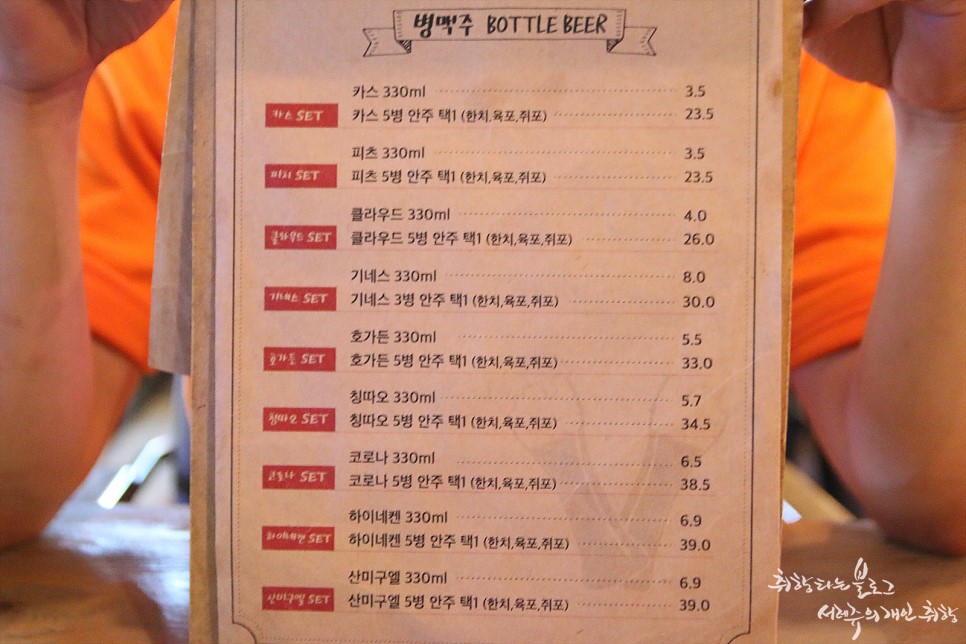 병맥주 BOTTLE BEER
카스 330ml 3.5
카스 SET 카스 5병 안주 택1 (한치,육포,쥐포) 23.5
피츠 330ml 3.5
피츠 SET 피츠 5병 안주 택1 (한치,육포,쥐포) 23.5
클라우드 330ml 4.0
클라우드 SET 클라우드 5병 안주 택1 (한치,육포,쥐포) 26.0
기네스 330ml 8.0
기네스 SET 기네스 3병 안주 택1 (한치,육포,쥐포) 30.0
호가든 330ml 5.5
호가든 SET 호가든 5병 안주 택1 (한치,육포,쥐포) 33.0
칭따오 330ml 5.7
칭따오 SET 칭따오 5병 안주 택1 (한치,육포,쥐포) 34.5
코로나 330ml 6.5
코로나 SET 코로나 5병 안주 택1 (한치,육포,쥐포) 38.5
하이네켄 330ml 6.9
하이네켄 SET 하이네켄 5병 안주 택1 (한치,육포,쥐포) 39.0
산미구엘 330ml 6.9
산미구엘 SET 산미구엘 5병 안주 택1 (한치,육포,쥐포) 39.0
취향타는 블로그
의 개인 취향